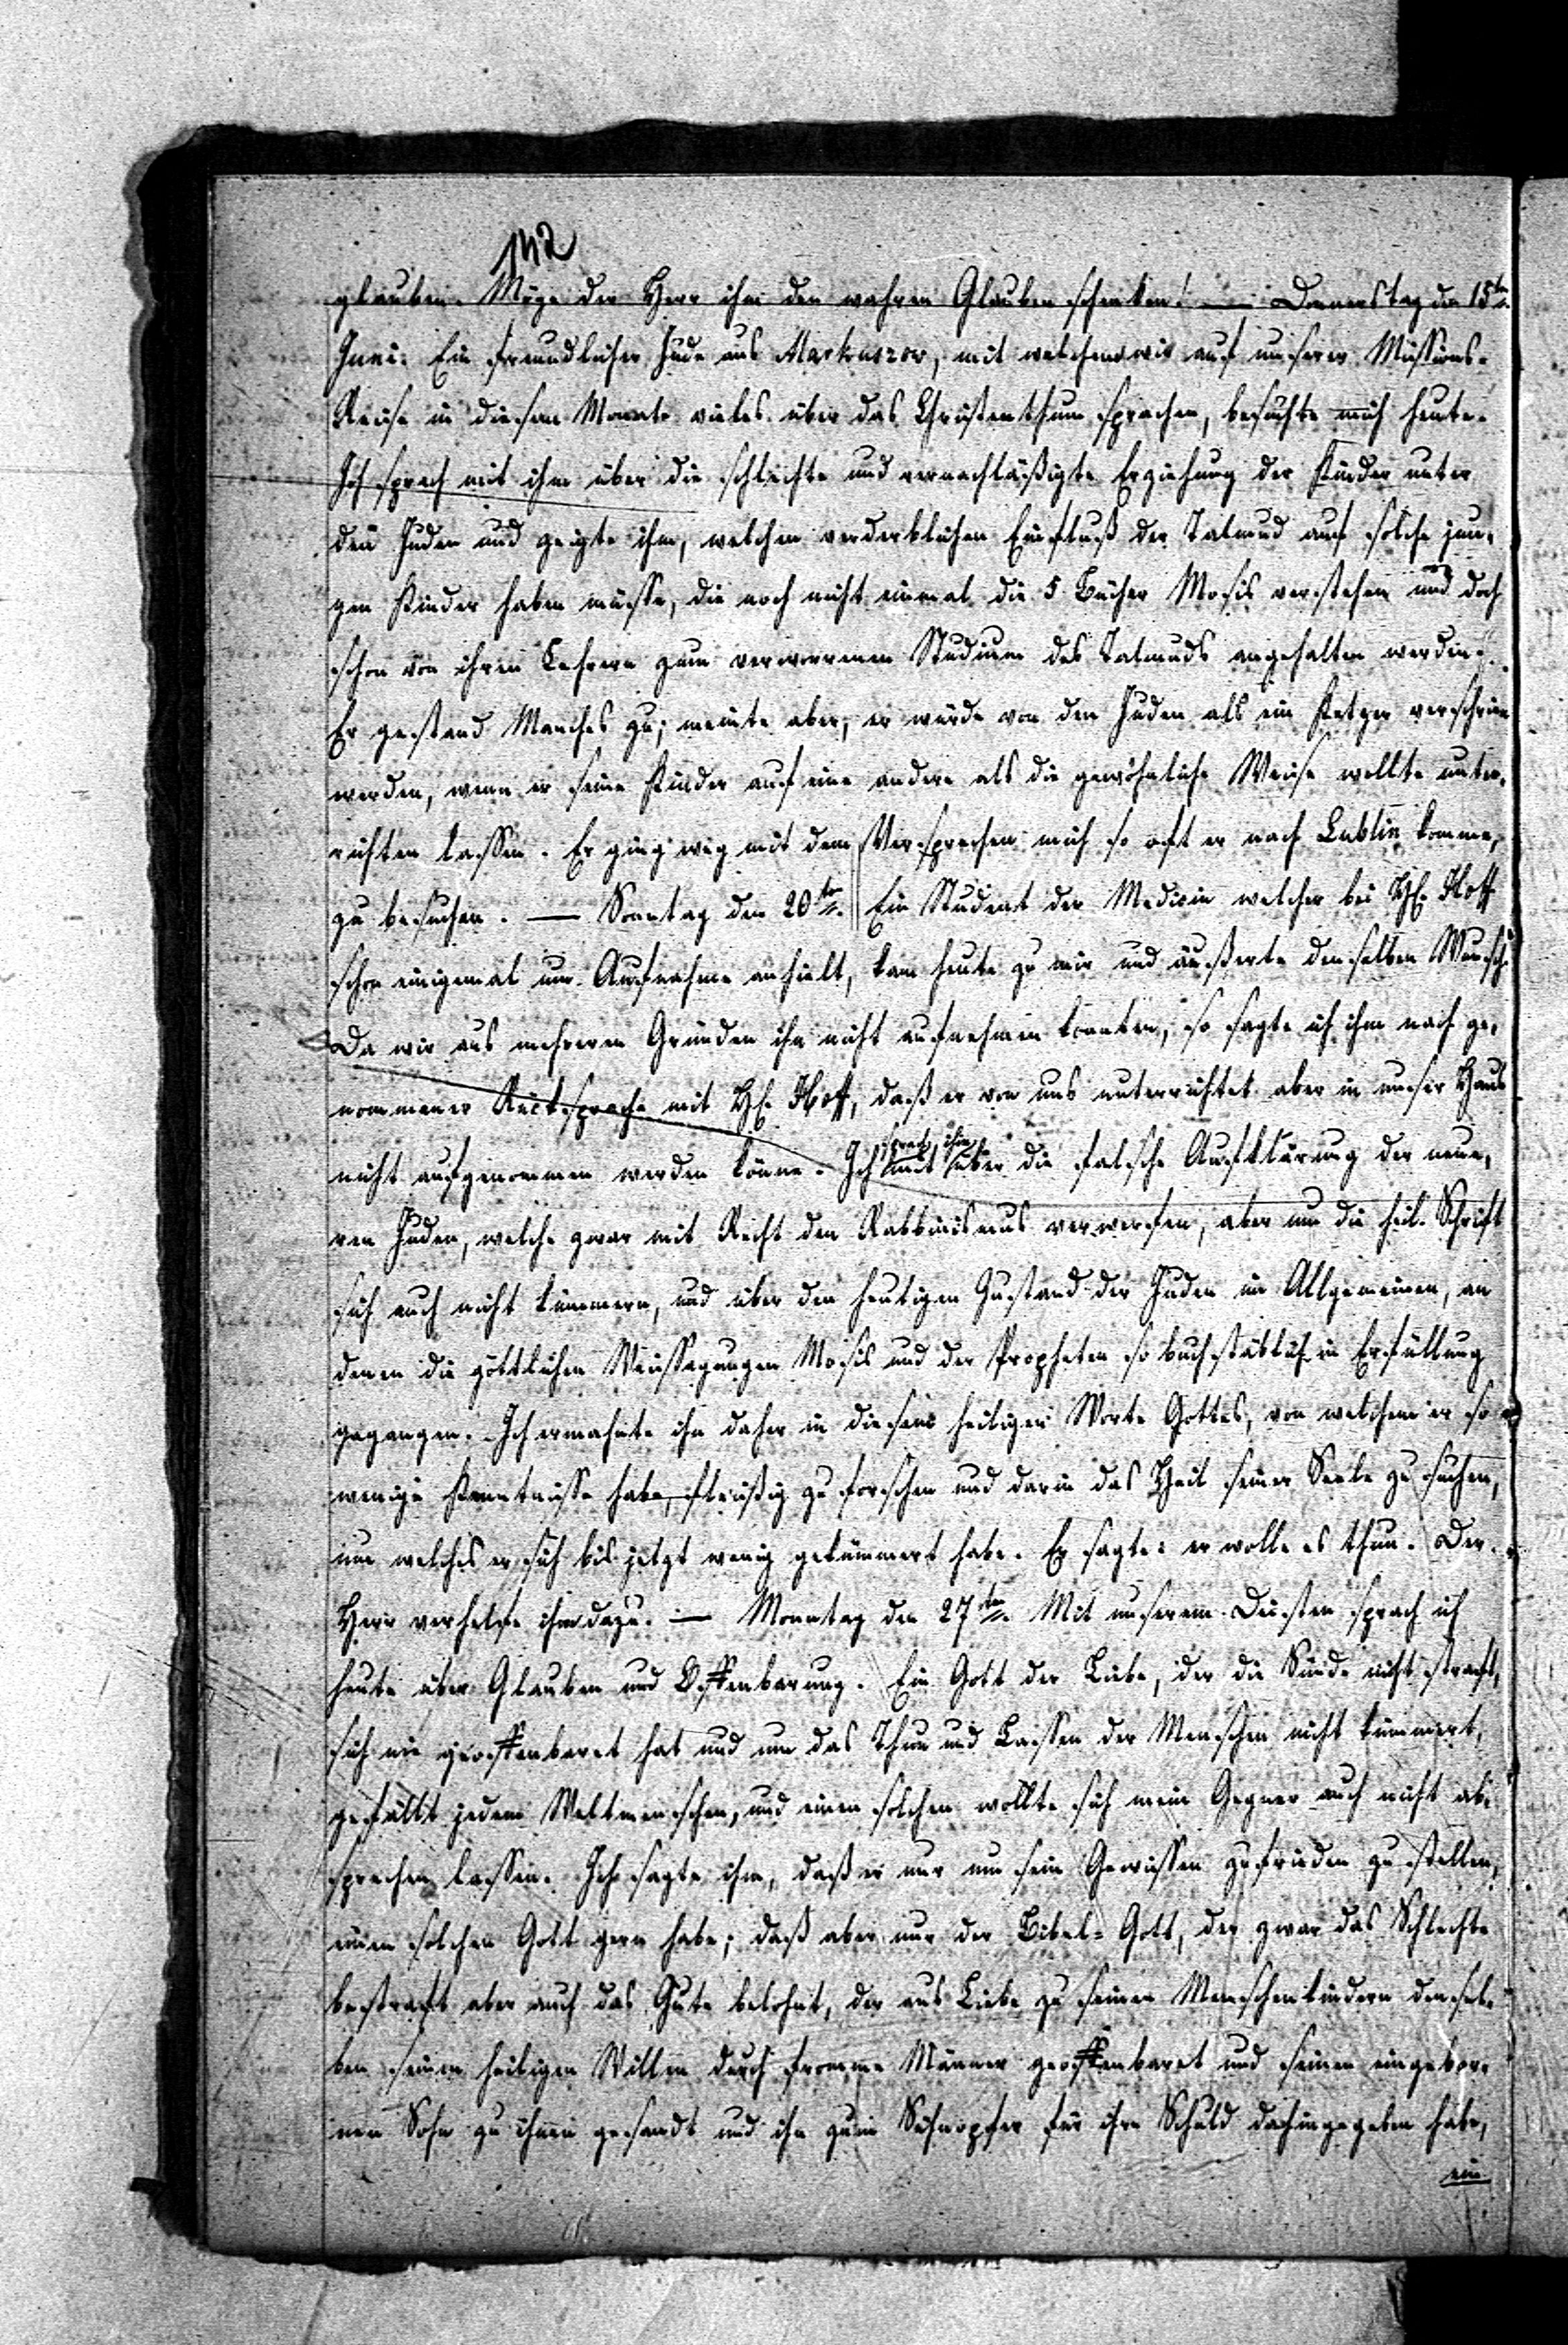 142
glauben. Möge der Herr ihm den wahren Glauben schenken! — Donnerstag den 15ten
Juni. Ein freundlicher Jude aus Markuszow, mit welchem wir auf unserer Missions-
Reise in diesem Monate vieles über das Christenthum sprachen, besuchte mich heute.
Ich sprach mit ihm über die schlechte und vernachläßigte Erziehung der Kinder unter
den Juden und zeigte ihm, welchen verderblichen Einfluß der Talmud auf solche jun-
gen Kinder haben müsse, die noch nicht einmal die 5 Bücher Mosis verstehen und doch
schon von ihren Lehrern zum verworrenen Studium des Talmuds angehalten werden.
Er gestand Manches zu; meinte aber, er würde von den Juden als ein Ketzer verschrien
werden, wenn er seine Kinder auf eine andere als die gewöhnliche Weise wollte unter-
richten lassen. Er ging weg mit dem Versprechen mich so oft er nach Lublin komme,
zu besuchen. — Sontag den 20ten. Ein Student der Medicin welcher bei H. Hoff
schon einigemal um Aufnahme anhielt, kam heute zu mir und äußerte denselben Wunsch.
Da wir aus mehreren Gründen ihn nicht aufnehmen konnten, so sagte ich ihm nach ge-
nommener Rücksprache mit H. Hoff, daß er von uns unterrichtet aber in unser Haus
nicht aufgenommen werden könne. Ich sprach mit ihm über die falsche Aufklärung der neue-
ren Juden, welche zwar mit Recht den Rabbinismus verwerfen, aber um die heil. Schrift
sich auch nicht kümmern, und über den heutigen Zustand der Juden im Allgemeinen, an
denen die göttlichen Weissagungen Mosis und der Propheten so buchstäblich in Erfüllung
gegangen. Ich ermahnte ihn daher in diesem heiligen Worte Gottes, von welchem er so
wenige Kenntnisse habe, fleißig zu forschen und darin das Heil seiner Seele zu suchen,
um welches er sich bis jetzt wenig gekümmert habe. Er sagte: er wolle es thun. Der
Herr verhelfe ihm dazu. — Monntag den 27ten. Mit unserem Deisten sprach ich
heute über Glauben und Offenbarung. Ein Gott der Liebe, der die Sünde nicht straft,
sich nie geoffenbaret hat und um das Thun und Lassen der Menschen nicht kümmert,
gefällt jedem Weltmenschen, und einen solchen wollte sich mein Gegner auch nicht ab-
sprechen lassen. Ich sagte ihm, daß er nur um sein Gewissen zufrieden zu stellen,
einen solchen Gott gern habe; daß aber nur der Bibel-Gott, der zwar das Schlechte
bestraft aber auch das Gute belohnt, der aus Liebe zu seinen Menschenkindern densel-
ben seinen heiligen Willen durch fromme Männer geoffenbaret und seinen eingebor-
nen Sohn zu ihnen gesandt und ihn zum Sühnopfer für ihre Schuld dahingegeben habe,
ein